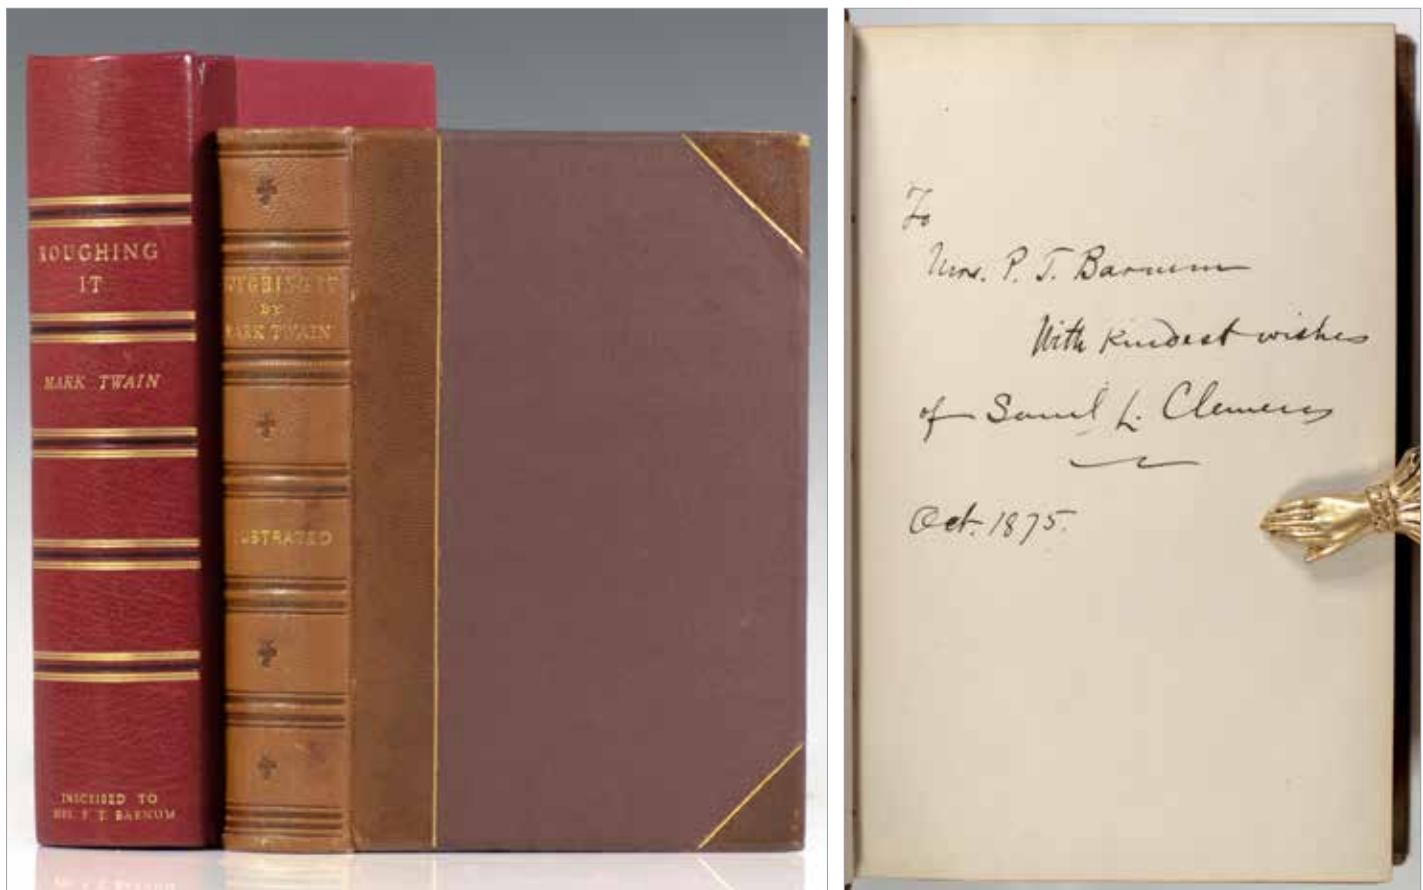 ROUGHING
IT
MARK TWAIN
INSCRIBED TO
MRS. P. T. BARNUM
ROUGHING IT
BY
MARK TWAIN
ILLUSTRATED
To
Mrs. P. T. Barnum
With kindest wishes
of Saml L. Clemens
Oct. 1875.